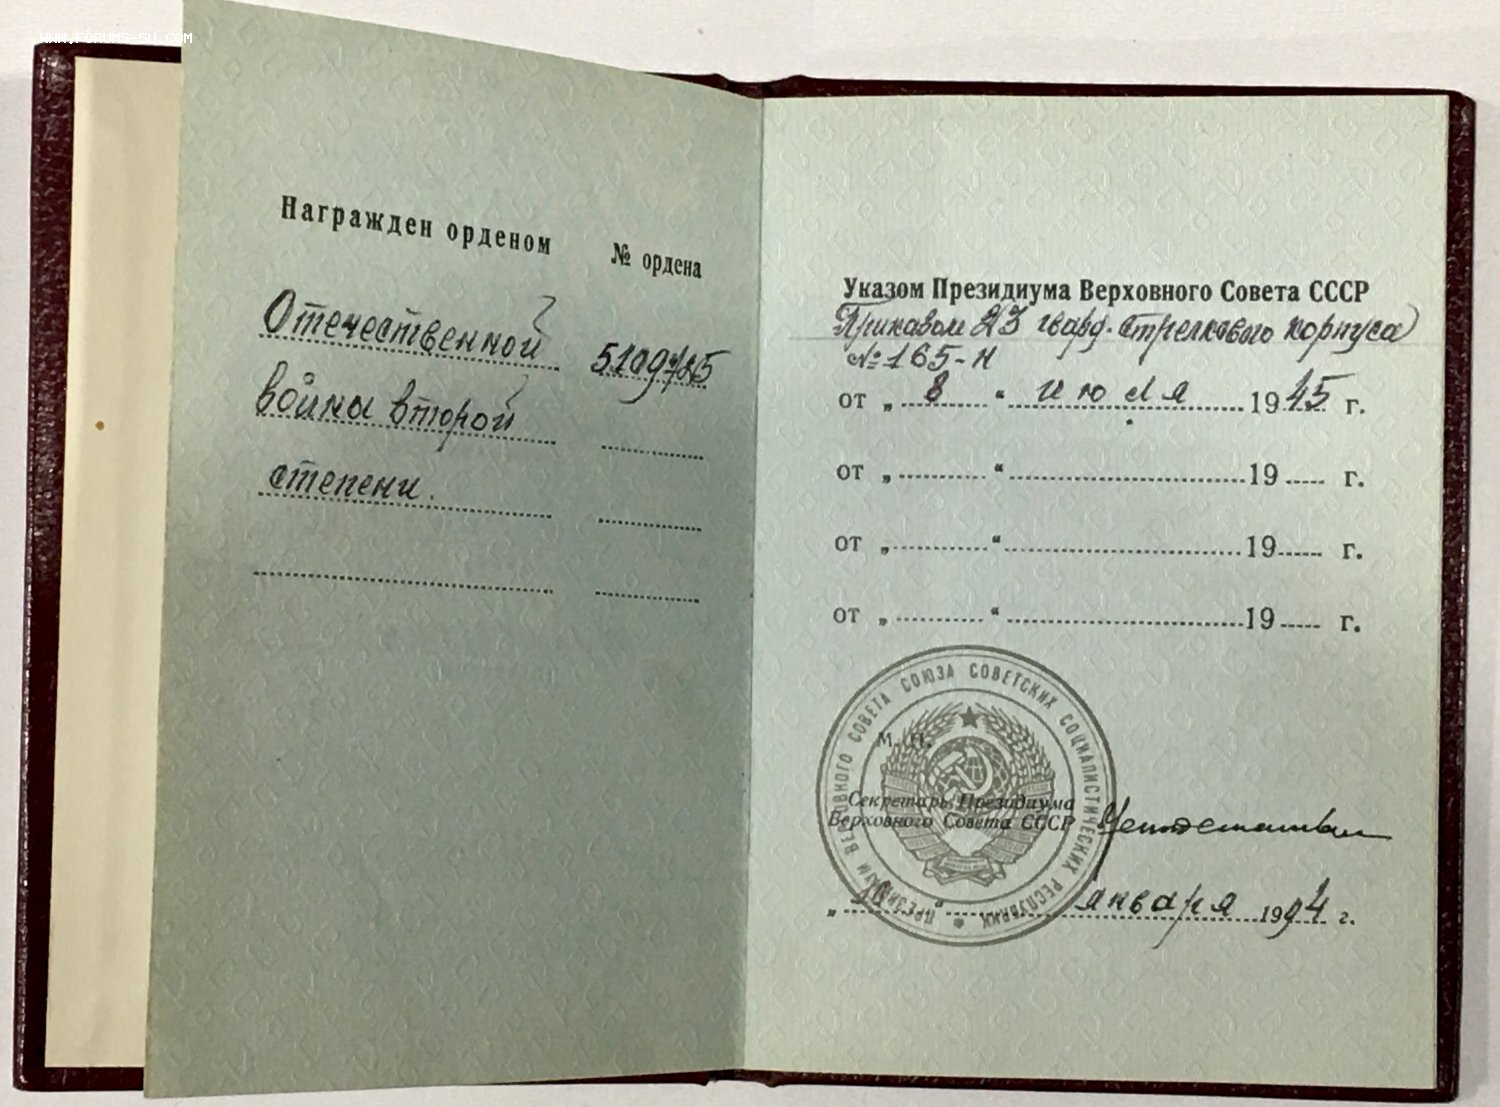 WWW.FORUMS-SU.COM
Награжден орденом
№ ордена
Отечественной
войны второй
степени.
Указом Президиума Верховного Совета СССР
Приказом 23 гвард. стрелкового корпуса
№ 165-н
от „ 8 “ июля 1945 г.
от „ “ 19 г.
от „ “ 19 г.
от „ “ 19 г.
ПРЕЗИДИУМ ВЕРХОВНОГО СОВЕТА СОЮЗА СОВЕТСКИХ СОЦИАЛИСТИЧЕСКИХ РЕСПУБЛИК
М. П.
Секретарь Президиума
Верховного Совета СССР
„ “ января 1994 г.